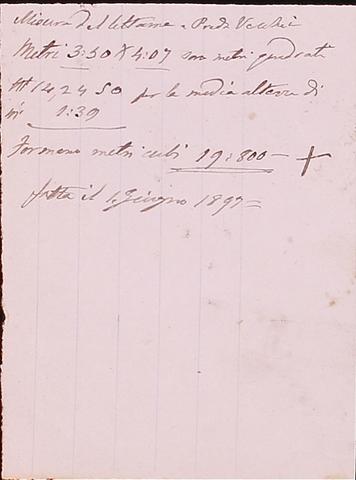 Misura del letame - Prodi Vecchi
Metri 3:50 X 4:07 sono metri quadrati
M 14,24 50 per la media altezza di
m 1:39
Formano metri cubi 19:800 - +
fatta il 1 Giugno 1897 =